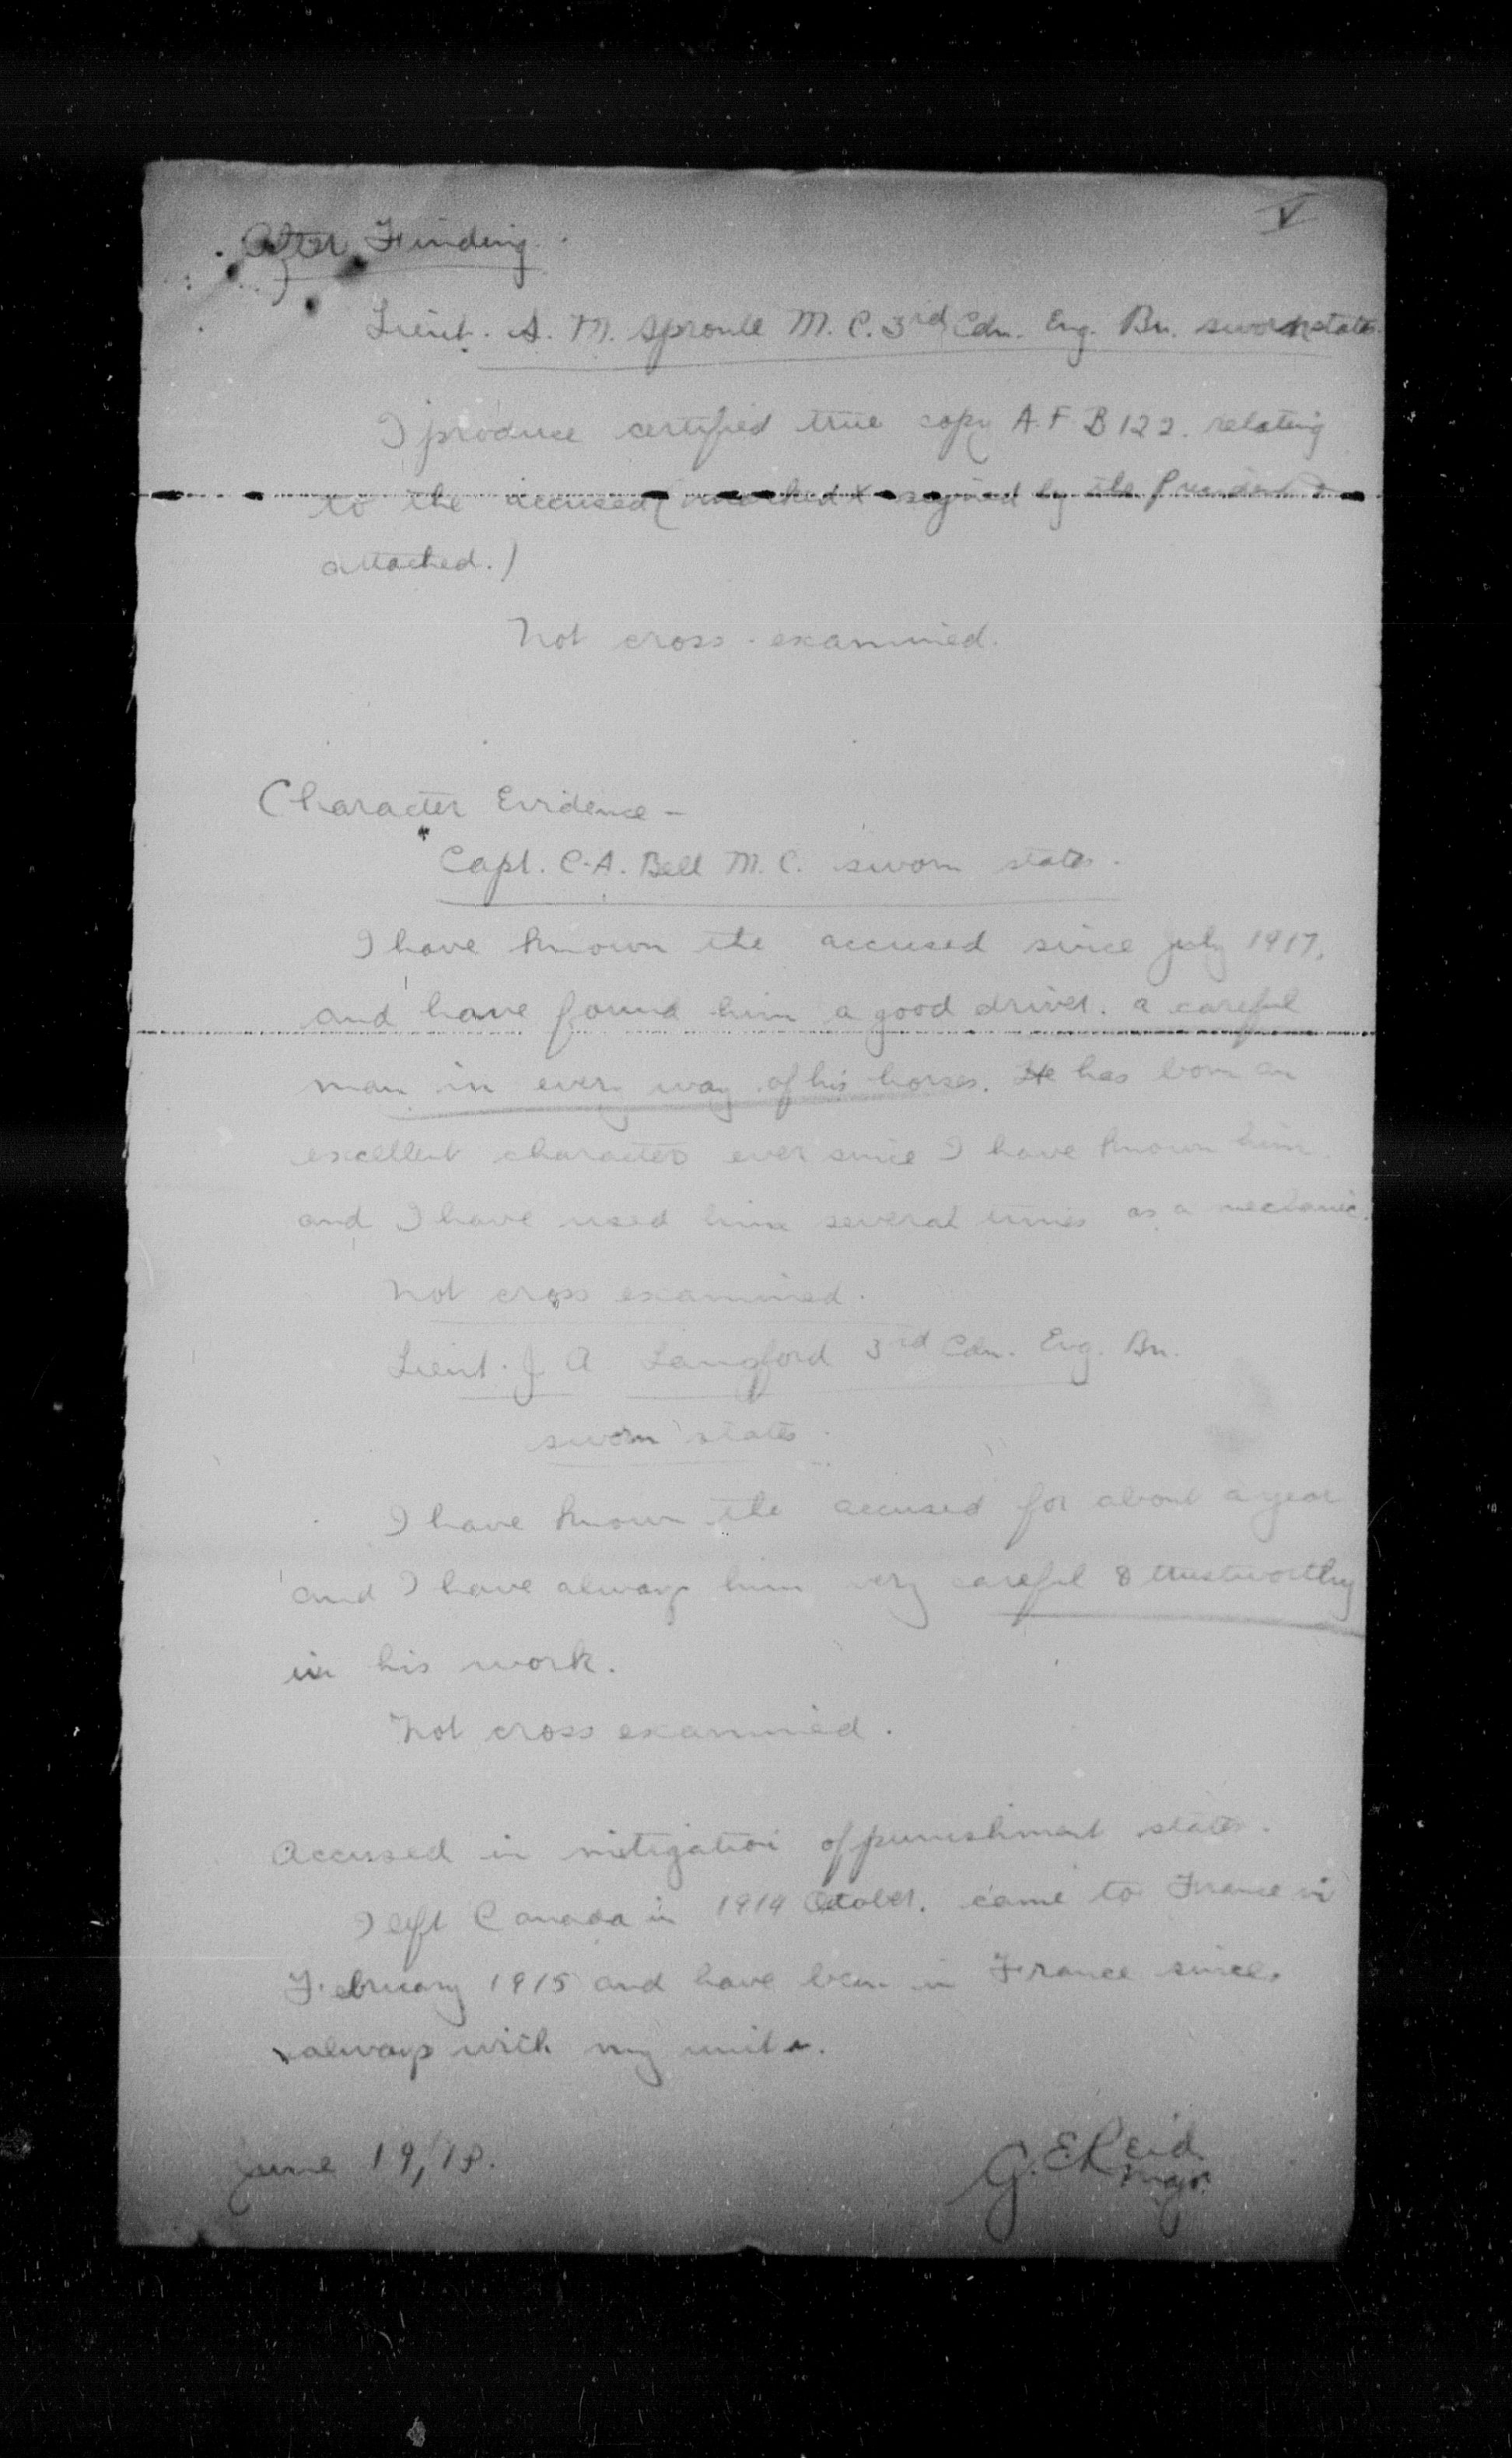 V
After Finding.
Lieut. A. M. Sproule M.C. 3rd Cdn. Eng. Bn. sworn states.
I produce certified true copy A.F B122. relating
to the accused (marked X signed by the President &
attached.)
Not cross-examined.
Character Evidence -
Capt. C.A. Bell M.C. sworn states.
I have known the accused since July 1917,
and have found him a good driver. a careful
man in every way of his horses. He has born an
excellent character ever since I have known him
and I have used him several times as a mechanic.
Not cross examined.
Lieut. J A Langford 3rd Cdn. Eng. Bn.
sworn states.
I have known the accused for about a year
and I have always him very careful & trustworthy
in his work.
Not cross examined.
Accused in mitigation of punishment states.
I left Canada in 1914 October. came to France in
February 1915 and have been in France since.
always with my unit.
June 19/18.
G. E Reid
Major